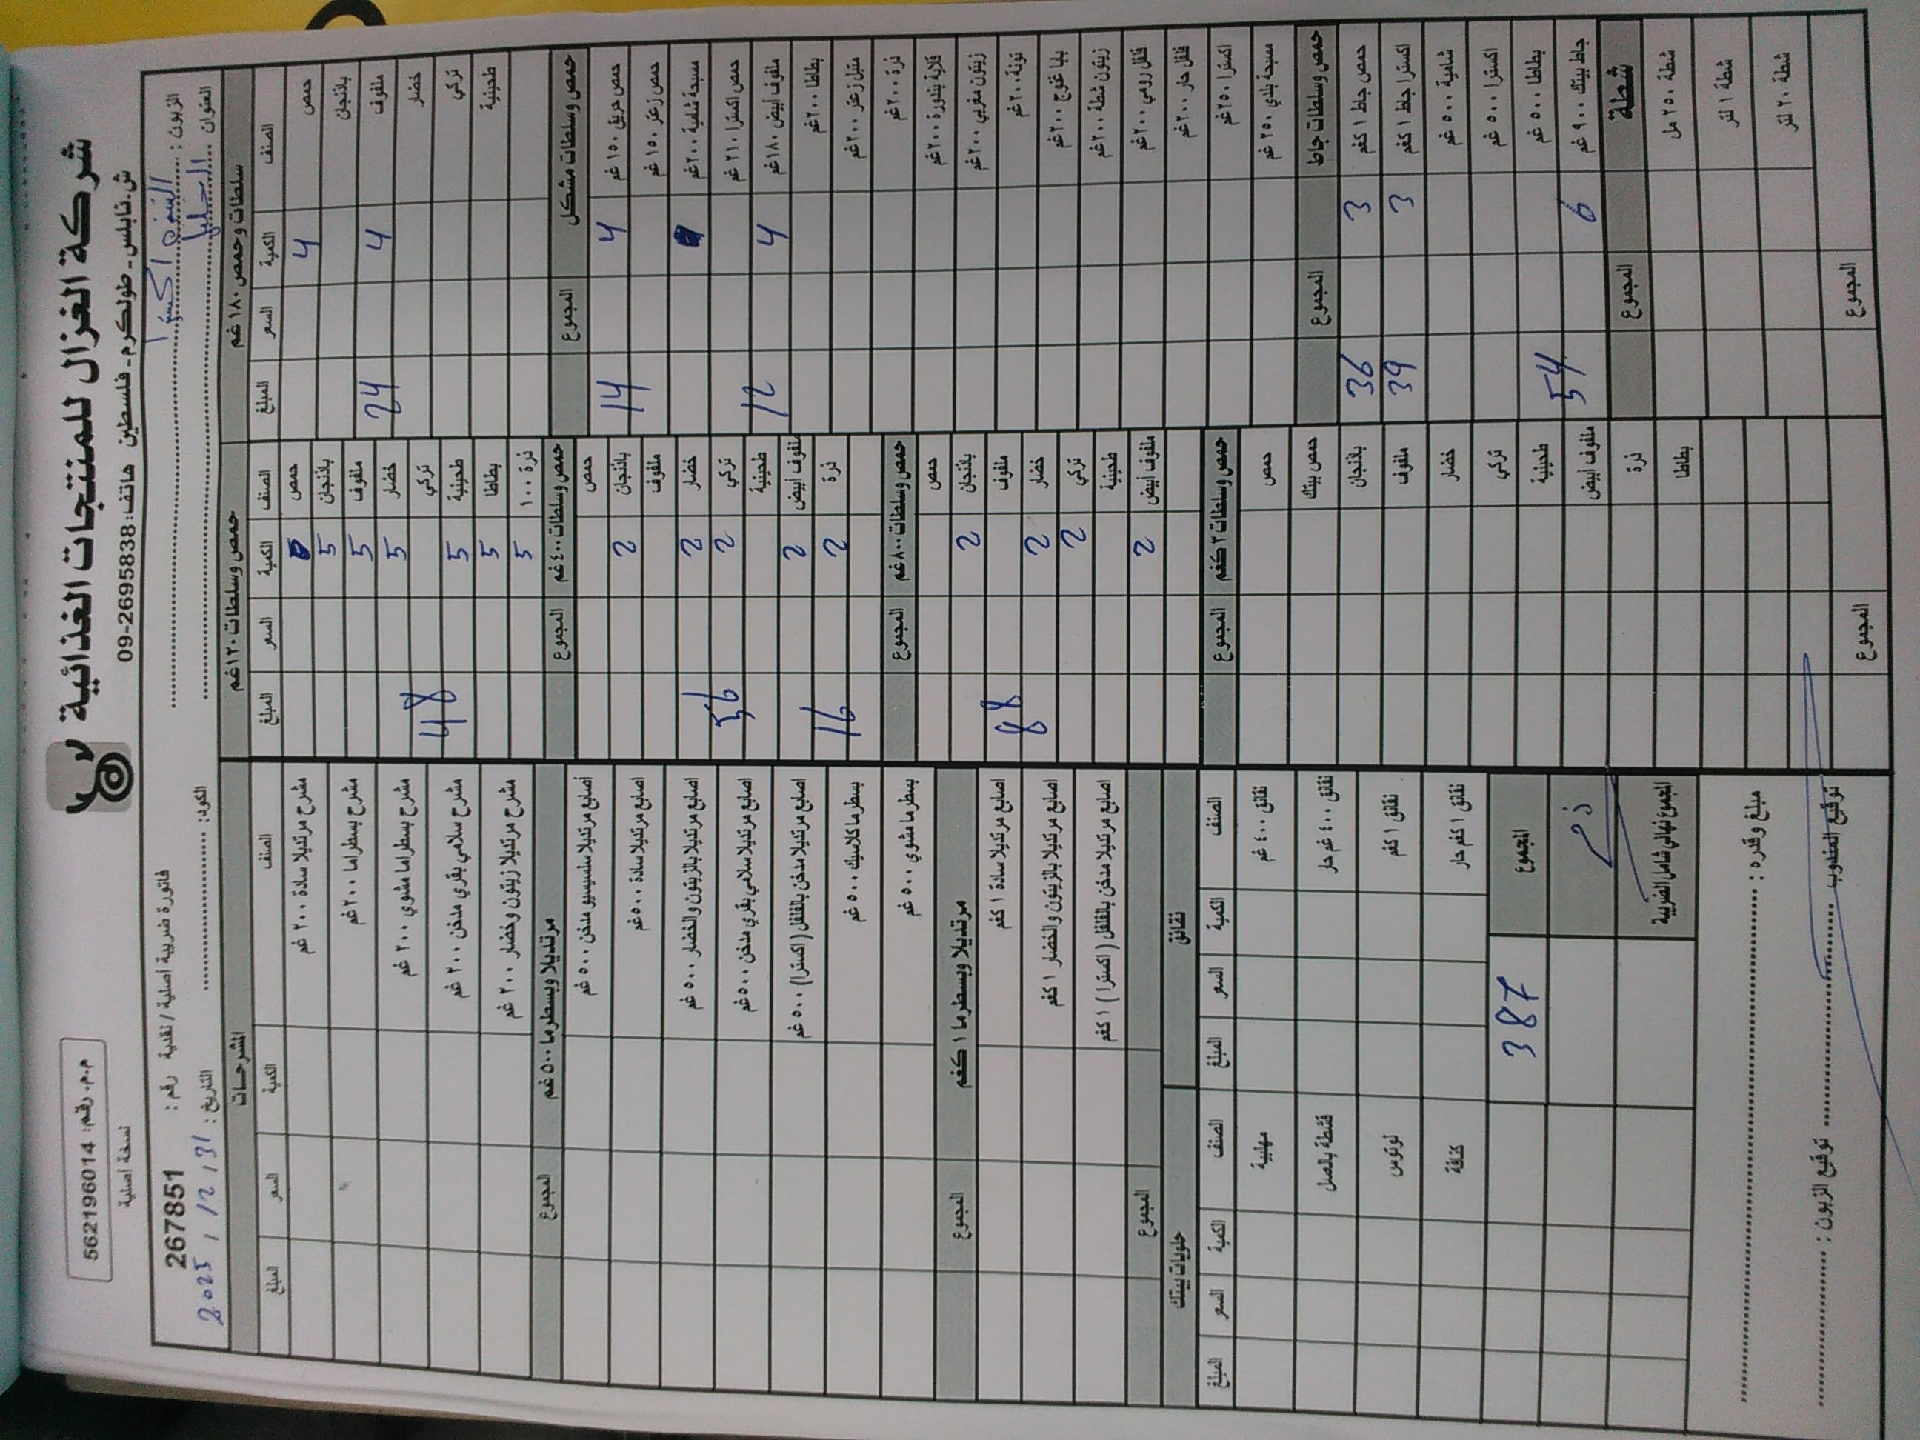 شركة الغزال للمنتجات الغذائية
ش. نابلس - طولكرم - فلسطين هاتف: 09-2695838
م.م. رقم: 562196014
نسخة اصلية
فاتورة ضريبة اصلية / نقدية رقم: 267851
الزبون:
العنوان: الجليل
الكود:
التاريخ: 2025 / 12 / 31
سلطات وحمص ١٨٠ غم
الصنف الكمية السعر المبلغ
حمص 4
باذنجان
ملفوف 4 24
خضار
تركي
طحينية
حمص وسلطات مشكل المجموع
حمص حريق ١٥٠ غم 4 14
حمص زعتر ١٥٠ غم
مسبحة شامية ٢٠٠ غم
حمص اكسترا ٢١٠ غم
ملفوف ابيض ١٨٠ غم 4 12
بطاطا ٢٠٠ غم
متبل زعتر ٢٠٠ غم
ذرة ٢٠٠ غم
قلاية بندورة ٢٠٠ غم
زيتون مغربي ٢٠٠ غم
تونة ٢٠٠ غم
بابا غنوج ٢٠٠ غم
زيتون شطة ٢٠٠ غم
فلفل رومي ٢٠٠ غم
فلفل حار ٢٠٠ غم
اكسترا ٢٥٠ غم
مسبحة بلدي ٢٥٠ غم
حمص وسلطات جاط المجموع
حمص جاط ١ كغم 3 36
اكسترا جاط ١ كغم 3 39
شامية ٥٠٠ غم
اكسترا ٥٠٠ غم
بطاطا ٥٠٠ غم
جاط بيتك ٩٠٠ غم 6 54
شطة المجموع
شطة ٢٥٠ مل
شطة ١ لتر
شطة ٢٠ لتر
المجموع
حمص وسلطات ١٢٠ غم
الصنف الكمية السعر المبلغ
حمص
باذنجان 5
ملفوف 5
خضار 5
تركي 48
طحينية 5
بطاطا 5
ذرة ١٠٠ 5
حمص وسلطات ٤٠٠ غم المجموع
حمص
باذنجان 2
ملفوف
خضار 2
تركي 2 56
طحينية
ملفوف ابيض 2
ذرة 2 16
حمص وسلطات ٨٠٠ غم المجموع
حمص
باذنجان 2
ملفوف
خضار 2 88
تركي 2
طحينية
ملفوف ابيض 2
حمص وسلطات ٣ كغم المجموع
حمص
حمص بيتك
باذنجان
ملفوف
خضار
تركي
طحينية
ملفوف ابيض
ذرة
بطاطا
المجموع
المشرحات
الصنف الكمية السعر المبلغ
مشرح مرتديلا سادة ٢٠٠ غم
مشرح بسطراما ٢٠٠ غم
مشرح بسطراما مشوي ٢٠٠ غم
مشرح سلامي بقري مدخن ٢٠٠ غم
مشرح مرتديلا زيتون وخضار ٢٠٠ غم
مرتديلا وبسطرما ٥٠٠ غم المجموع
اصابع مرتديلا سلسيسيو مدخن ٥٠٠ غم
اصابع مرتديلا سادة ٥٠٠ غم
اصابع مرتديلا بالزيتون والخضار ٥٠٠ غم
اصابع مرتديلا سلامي بقري مدخن ٥٠٠ غم
اصابع مرتديلا مدخن بالفلفل (اكسترا) ٥٠٠ غم
بسطرما كلاسيك ٥٠٠ غم
بسطرما مشوي ٥٠٠ غم
مرتديلا وبسطرما ١ كغم المجموع
اصابع مرتديلا سادة ١ كغم
اصابع مرتديلا بالزيتون والخضار ١ كغم
اصابع مرتديلا مدخن بالفلفل (اكسترا) ١ كغم
المجموع
نقانق
الصنف الكمية السعر المبلغ
نقانق ٤٠٠ غم
نقانق ٤٠٠ غم حار
نقانق ١ كغم
نقانق ١ كغم حار
حلويات بيتك
الصنف الكمية السعر المبلغ
مهلبية
قشطة بالعسل
لوتوس
كنافة
المجموع 387
المجموع نهائي شامل الضريبة
مبلغ وقدره:
توقيع المندوب
توقيع الزبون: